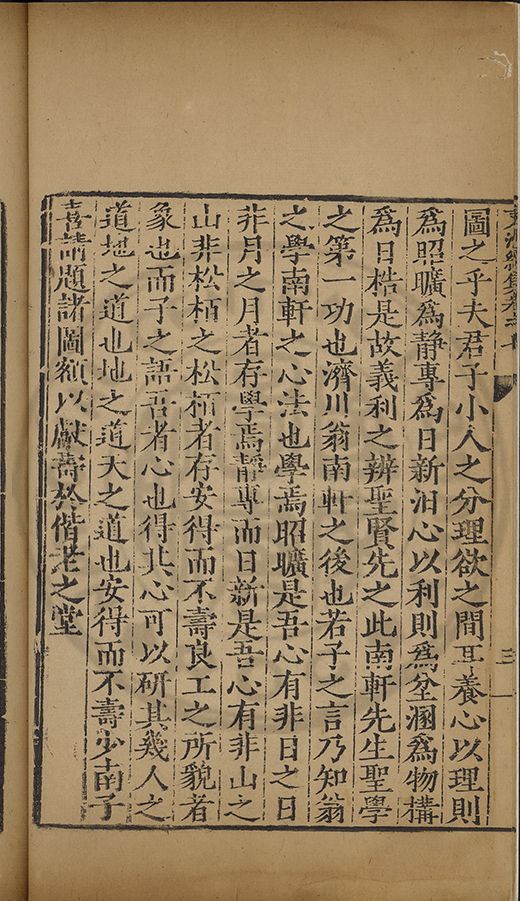 圖之乎夫君子小人之分理欲之間耳養心以理則
爲昭曠爲靜專爲日新汨心以利則爲坌溷爲物搆
爲日梏是故義利之辨聖賢先之此南軒先生聖學
之第一功也濟川翁南軒之後也若子之言乃知翁
之學南軒之心法也學焉昭曠是吾心有非日之日
非月之月者存學焉靜專而日新是吾心有非山之
山非松栢之松栢者存安得而不壽良工之所貌者
象也而子之語吾者心也得其心可以研其幾人之
道地之道也地之道天之道也安得而不壽少南子
喜請題諸圖額以獻壽於偕老之堂
三